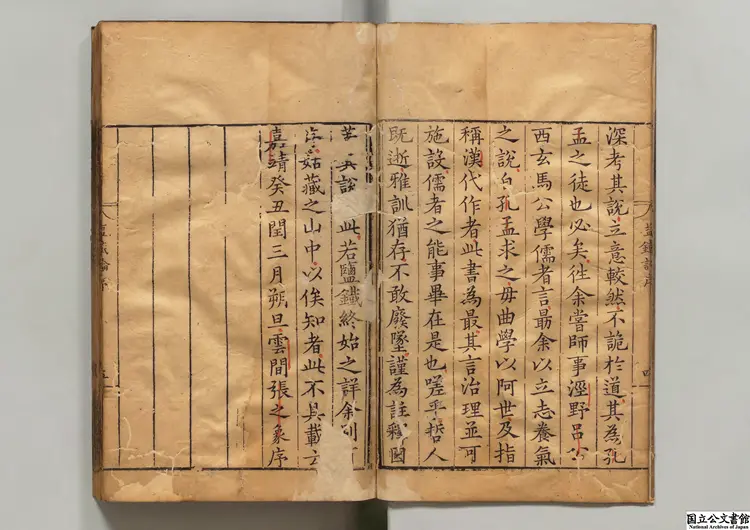 深考其說立意較然不詭於道其為孔
孟之徒也必矣徃余嘗師事涇野呂公
西玄馬公學儒者言勗余以立志養氣
之說自孔孟求之毋曲學以阿世及指
稱漢代作者此書為最其言治理並可
施設儒者之能事畢在是也嗟乎哲人
既逝雅訓猶存不敢廢墜謹為註釋
其說 此若鹽鐵終始之詳余別
姑藏之山中以俟知者此不具載云
嘉靖癸丑閏三月朔旦雲間張之象序
鹽鐵論序
鹽鐵論序
国立公文書館
National Archives of Japan